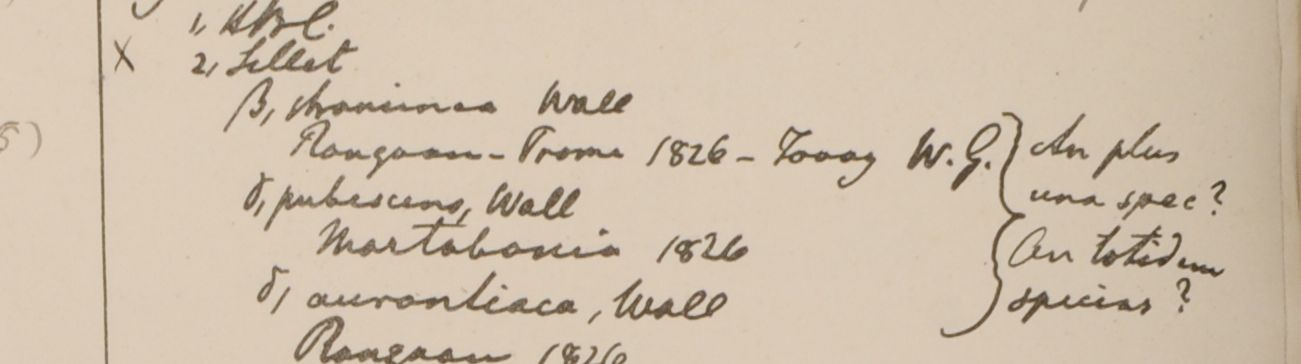 1, HBC.
X 2, Sillet
β, Wall
Rangoon - Prome 1826 - Tavoy W.G. } An plus
una spec?
γ, pubescens, Wall
Martabania 1826 } An totidem
δ, aurantiaca, Wall species?
Rangoon 1826